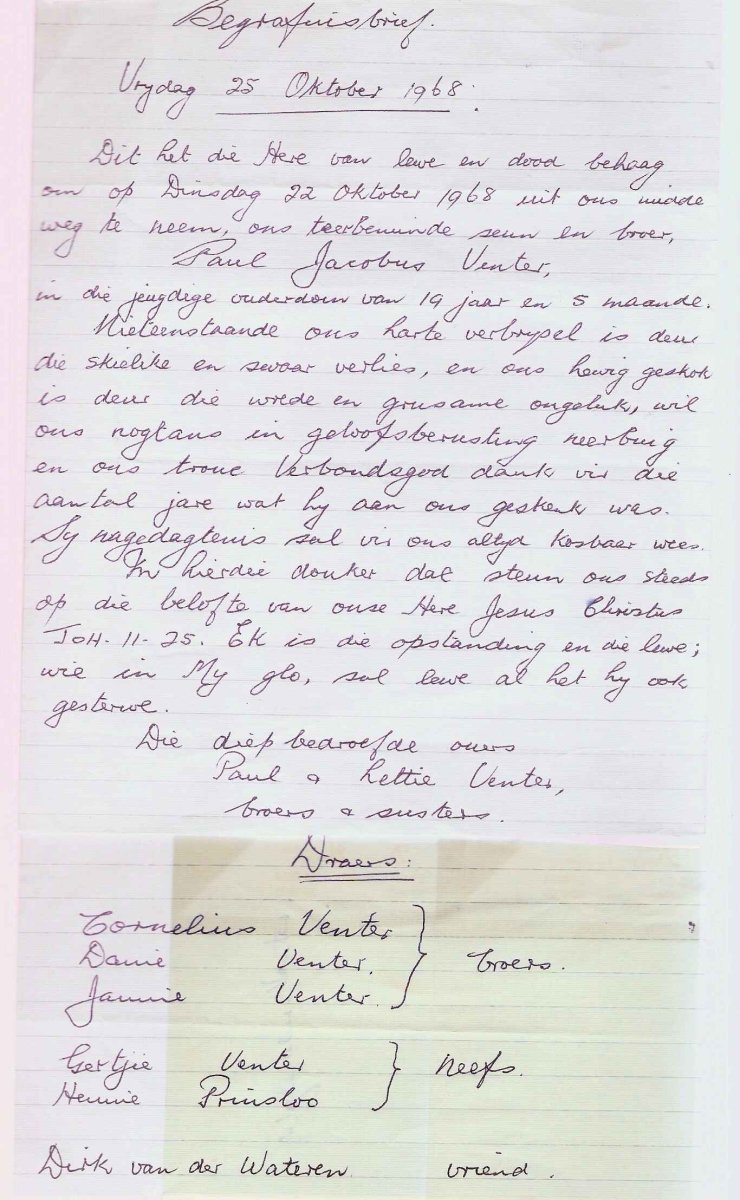 Begrafnisbrief.
Vrydag 25 Oktober 1968.
Dit het die Here van lewe en dood behaag
om op Dinsdag 22 Oktober 1968 uit ons midde
weg te neem, ons teerbeminde seun en broer,
Paul Jacobus Venter,
in die jeugdige ouderdom van 19 jaar en 5 maande.
Nieteenstaande ons harte verbrysel is deur
die skielike en swaar verlies, en ons hewig geskok
is deur die wrede en grusame ongeluk, wil
ons nogtans in geloofsberusting neerbuig
en ons troue Verbondsgod dank vir die
aantal jare wat hy aan ons geskenk was.
Sy nagedagtenis sal vir ons altyd kosbaar wees.
In hierdie donker dal steun ons steeds
op die belofte van onse Here Jesus Christus
JOH. 11-25. Ek is die opstanding en die lewe;
wie in My glo, sal lewe al het hy ook
gesterwe.
Die diep bedroefde ouers
Paul & Lettie Venter,
broers & susters.
Draers:
Cornelius Venter
Danie Venter. } broers.
Jannie Venter.
Gertjie Venter } Neefs.
Hennie Prinsloo
Dirk van der Wateren vriend.